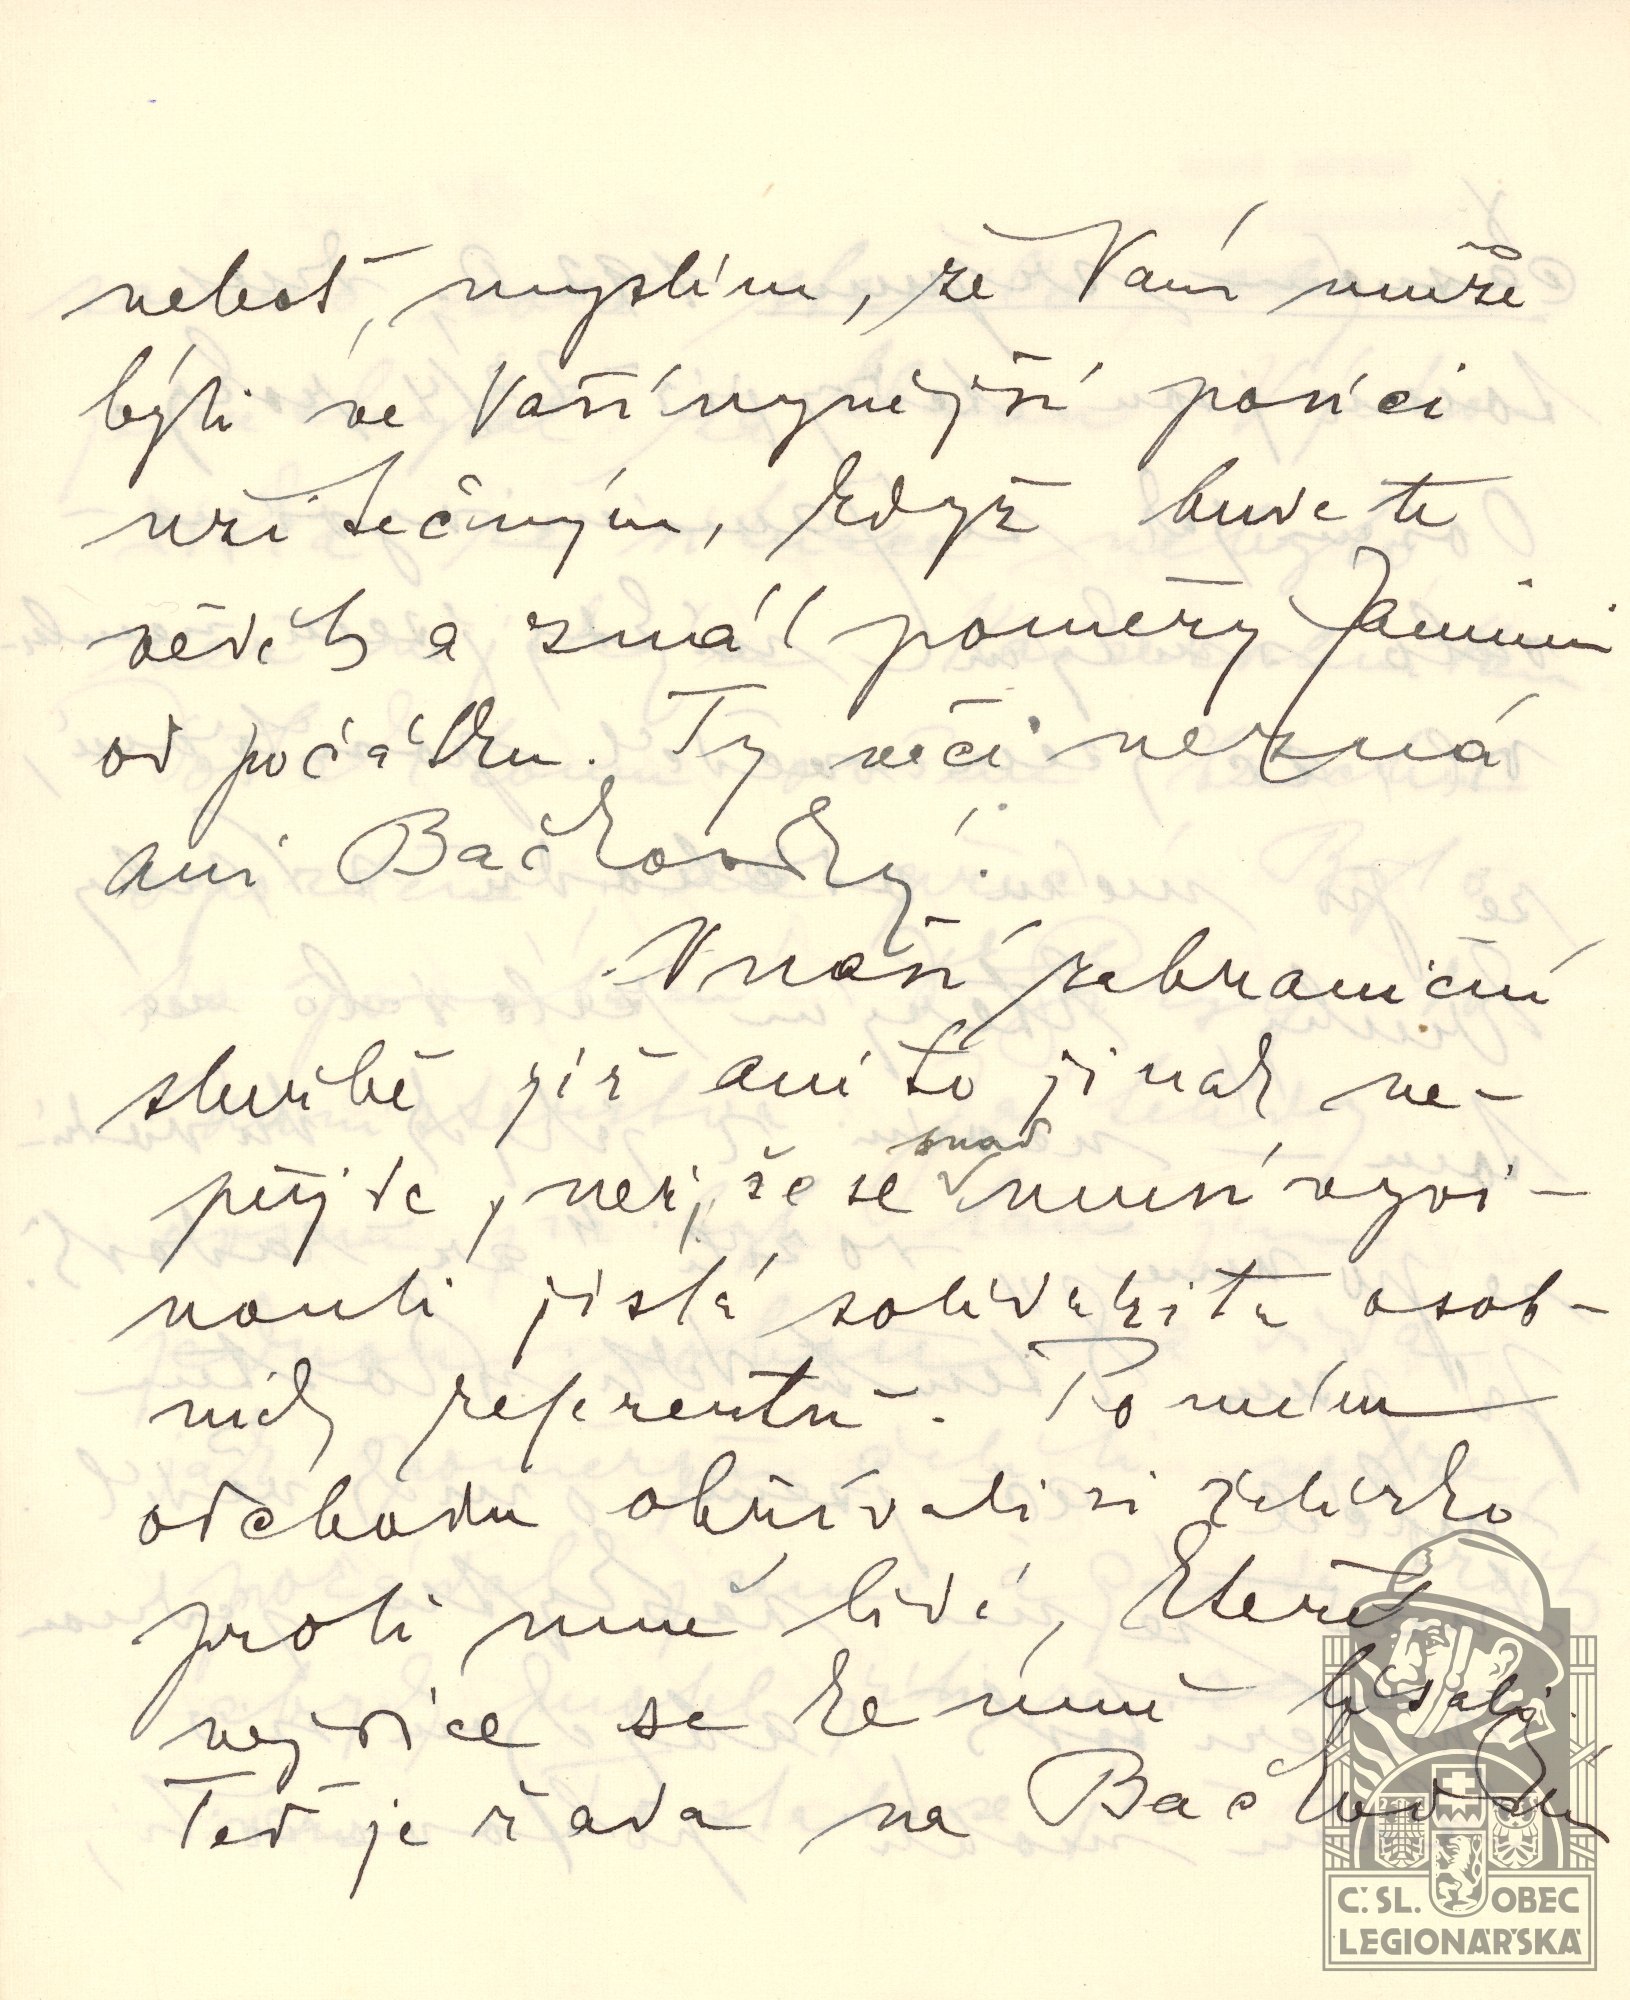 neboť, myslím, že Vám může
býti ve Vaší nynější posici
užitečným, když budete
věděti a znáti poměry Jamini
od počátku. Ty věci nezná
ani Bačkovský!
V naší zahraniční
službě již ani to jinak ne-
půjde, než, že se snad musí vyvi-
nouti jistá solidarita osob-
ních referentů. Po mém
odchodu ohřívali si želízko
proti mně lidé, kteří
nejvíce se ke mně hlásili.
Teď je řada na Bačkovském
Č. SL. OBEC
LEGIONÁŘSKÁ